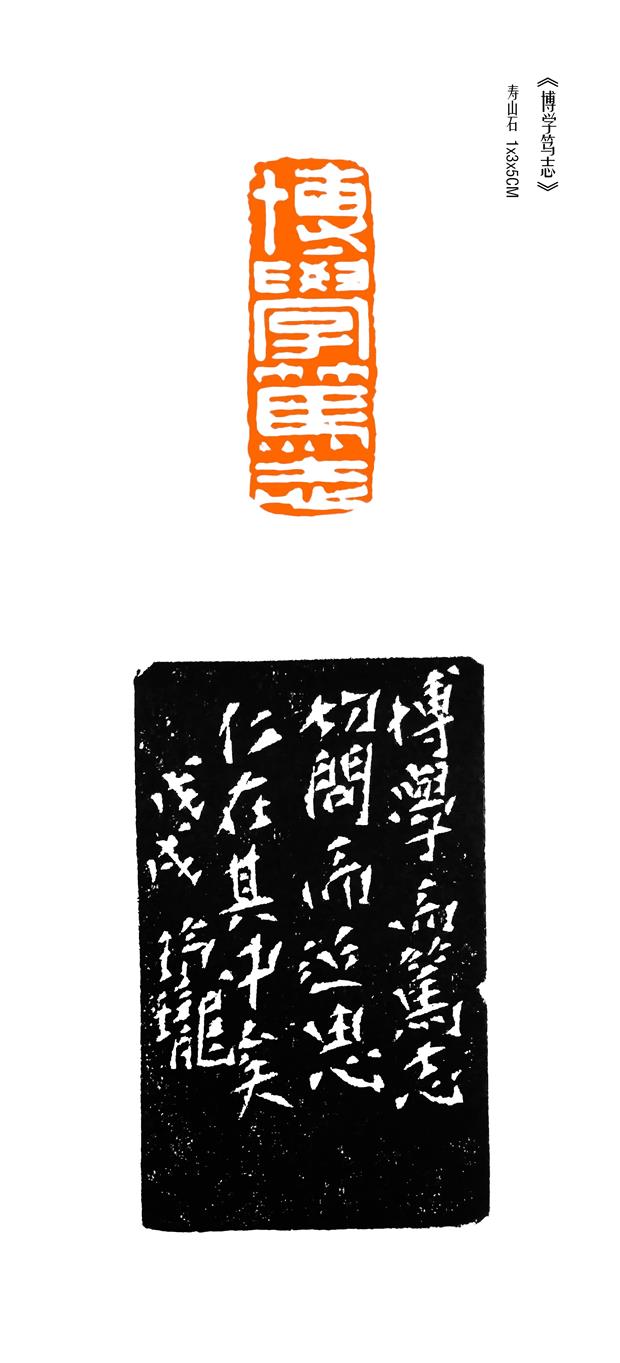 《博学笃志》
寿山石 1x3x5CM
博學篤志
博學而篤志
切問而近思
仁在其中矣
戊戌 玲瓏